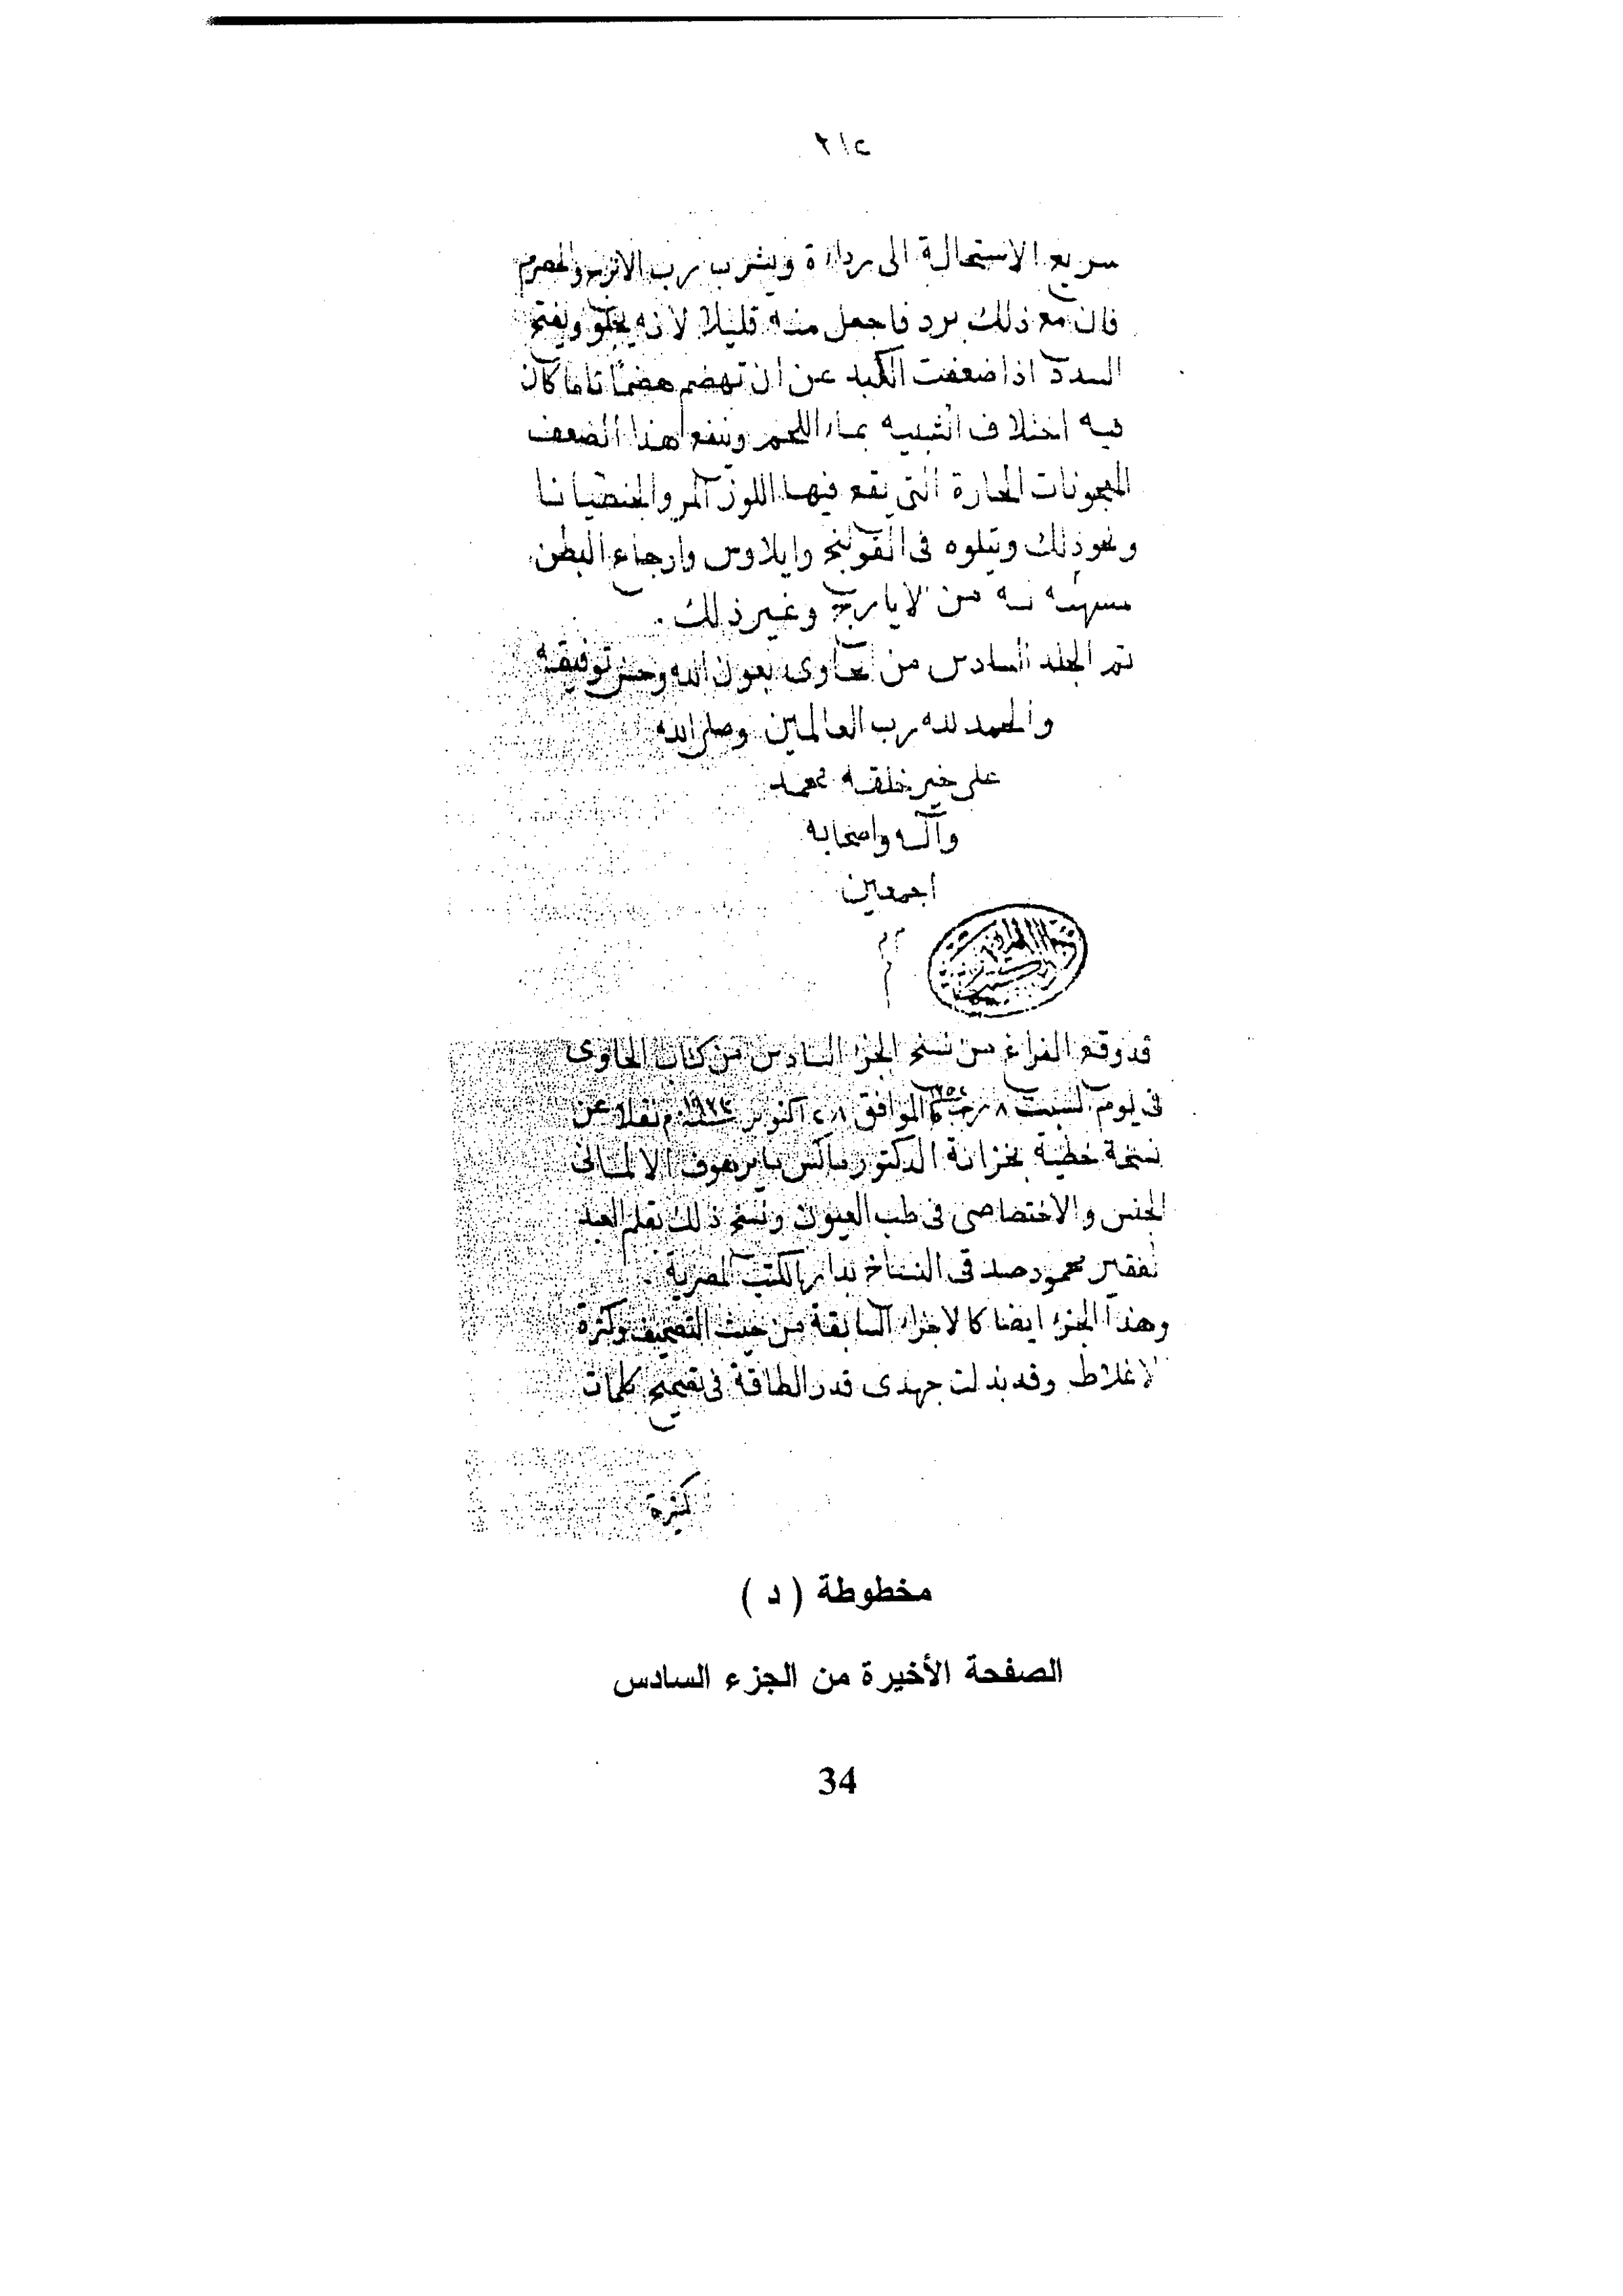 ٢١٢
سريع الاستحالة الى رداءة ويشرب رب الاترج والحصرم
فان مع ذلك برد فاجعل منه قليلا لانه يجلو ويفتح
السدد اذا ضعفت الكبد عن ان تهضم هضما تاما كان
فيه اختلاف الشبيه بماء اللحم وينفع هذا الضعف
المعجونات الحارة التى يقع فيها اللوز المر والجنطيانا
ونحو ذلك ويتلوه فى القولنج وايلاوس وارجاع البطن
مسهلة من الايارج وغير ذلك .
تم الجلد السادس من الحاوى بعون الله وحسن توفيقه
والحمد لله رب العالمين وصلى الله
على خير خلقه محمد
وآله واصحابه
اجمعين
قد وقع الفراغ من نسخ الجزء السادس من كتاب الحاوى
فى يوم السبت ٨ رجب الموافق ٢٨ اكتوبر م نقلا عن
نسخة خطية بخزانة الدكتور ماكس مايرهوف الالمانى
الجنس والاختصاصى فى طب العيون ونسخ ذلك بقلم العبد
الفقير محمود صدقى النساخ بدار الكتب المصرية .
وهذا الجزء ايضا كالاجزاء السابقة من حيث التصحيف وكثرة
الاغلاط وقد بذلت جهدى قدر الطاقة فى تصحيح كلمات
كثيرة
مخطوطة ( د )
الصفحة الأخيرة من الجزء السادس
34